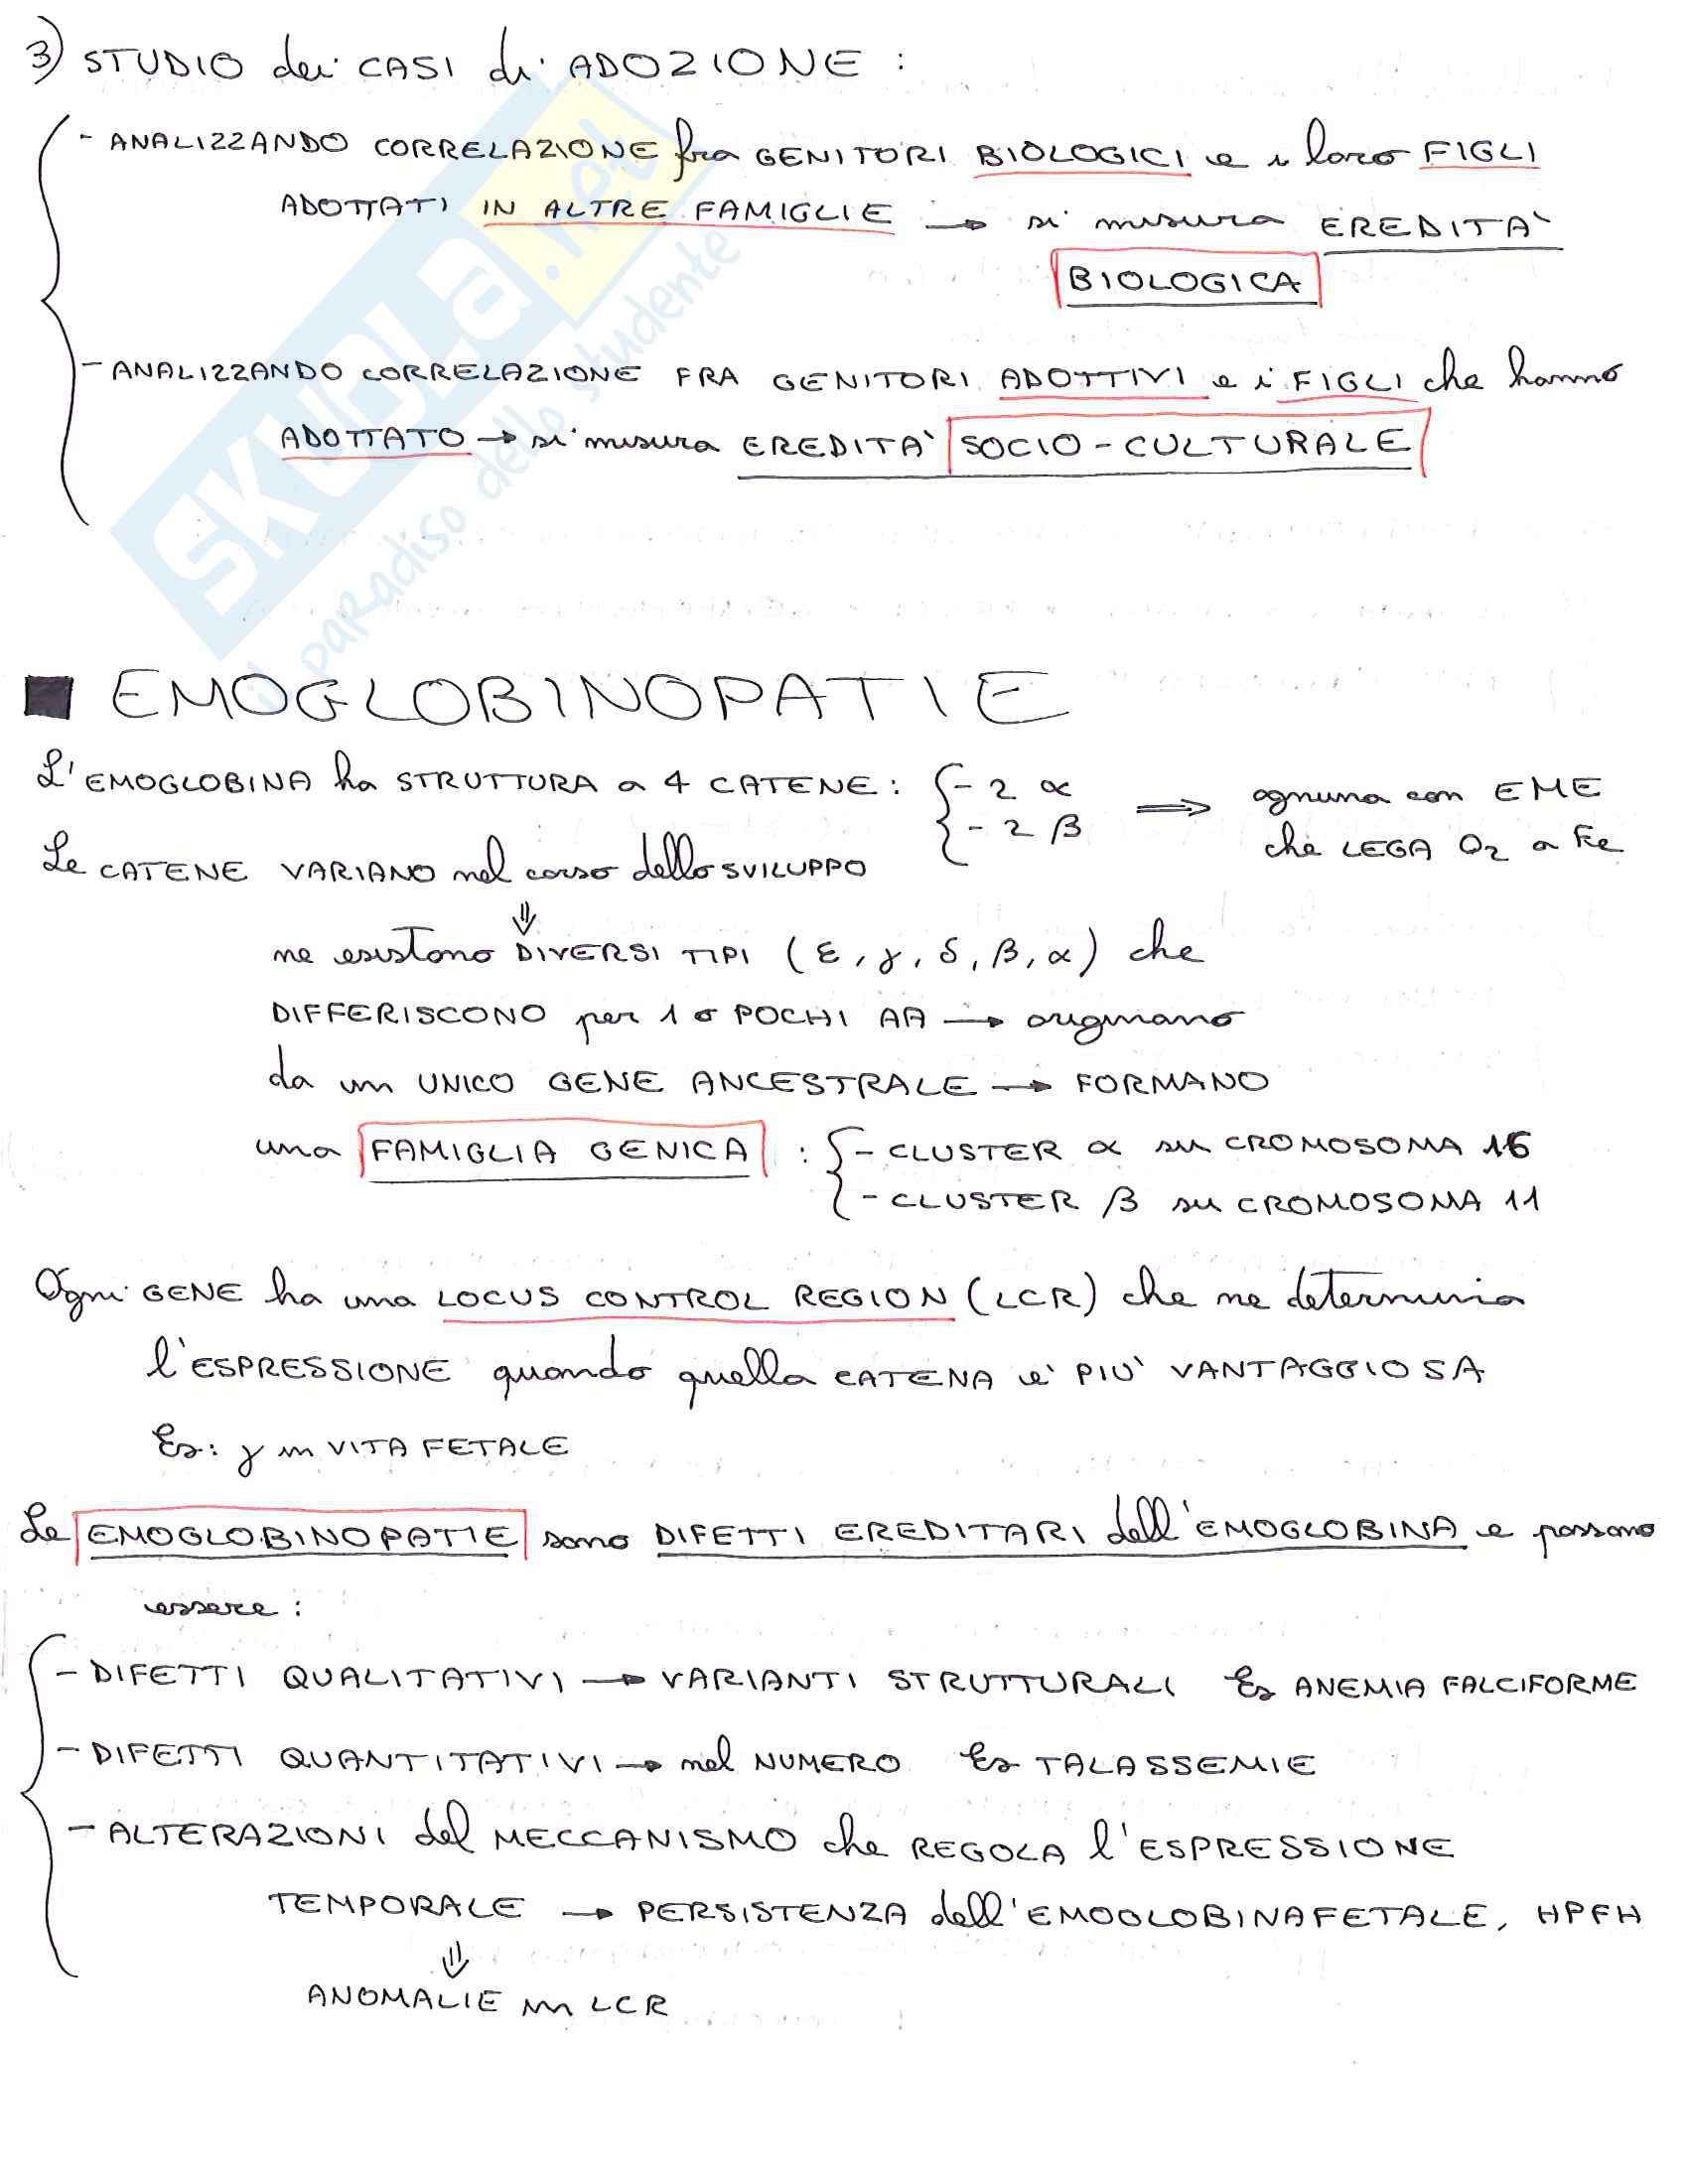 3) STUDIO dei CASI di ADOZIONE :
- ANALIZZANDO CORRELAZIONE fra GENITORI BIOLOGICI e i loro FIGLI
ADOTTATI IN ALTRE FAMIGLIE → si misura EREDITA'
BIOLOGICA
- ANALIZZANDO CORRELAZIONE FRA GENITORI ADOTTIVI e i FIGLI che hanno
ADOTTATO → si misura EREDITA' SOCIO-CULTURALE
SKUOLA.net
il paradiso dello studente
■ EMOGLOBINOPATIE
L'EMOGLOBINA ha STRUTTURA a 4 CATENE: { - 2 α ⇒ ognuna con EME
- 2 β che LEGA O2 a Fe
Le CATENE VARIANO nel corso dello SVILUPPO
⇓
ne esistono DIVERSI TIPI (ε, γ, δ, β, α) che
DIFFERISCONO per 1 o POCHI AA → originano
da un UNICO GENE ANCESTRALE → FORMANO
una FAMIGLIA GENICA : { - CLUSTER α su CROMOSOMA 16
- CLUSTER β su CROMOSOMA 11
Ogni GENE ha una LOCUS CONTROL REGION (LCR) che ne determina
l'ESPRESSIONE quando quella CATENA e' PIU' VANTAGGIOSA
Es: γ in VITA FETALE
Le EMOGLOBINOPATIE sono DIFETTI EREDITARI dell'EMOGLOBINA e possono
essere :
- DIFETTI QUALITATIVI → VARIANTI STRUTTURALI Es ANEMIA FALCIFORME
- DIFETTI QUANTITATIVI → nel NUMERO Es TALASSEMIE
- ALTERAZIONI del MECCANISMO che REGOLA l'ESPRESSIONE
TEMPORALE → PERSISTENZA dell'EMOGLOBINA FETALE, HPFH
⇓
ANOMALIE in LCR